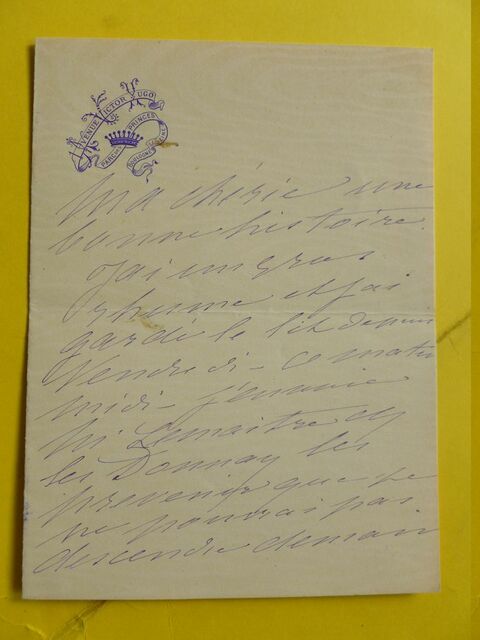 AVENUE VICTOR HUGO
PARC DES PRINCES
BOULOGNE
Ma chérie une
bonne histoire.
J'ai un gros
rhume et j'ai
gardé le lit depuis
Vendredi - ce matin
midi -
Lemaître et
les Donnay les
prévenir que je
ne pourrai pas
descendre demain